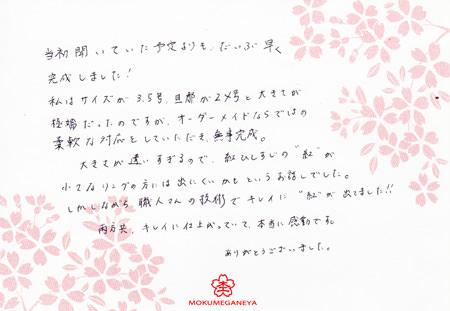 当初聞いていた予定よりも、だいぶ早く
完成しました！
私はサイズが3.5号、旦那が24号と大きさが
極端だったのですが、オーダーメイドならではの
柔軟な対応をしていただき、無事完成。
大きさが違いすぎるので、紅ひとすじの"紅"が
小さなリングの方には出にくいかもというお話しでした。
しかしながら、職人さんの技術でキレイに"紅"が出てました!!
両方共、キレイに仕上がっていて、本当に感動です。
ありがとうございました。
MOKUMEGANEYA